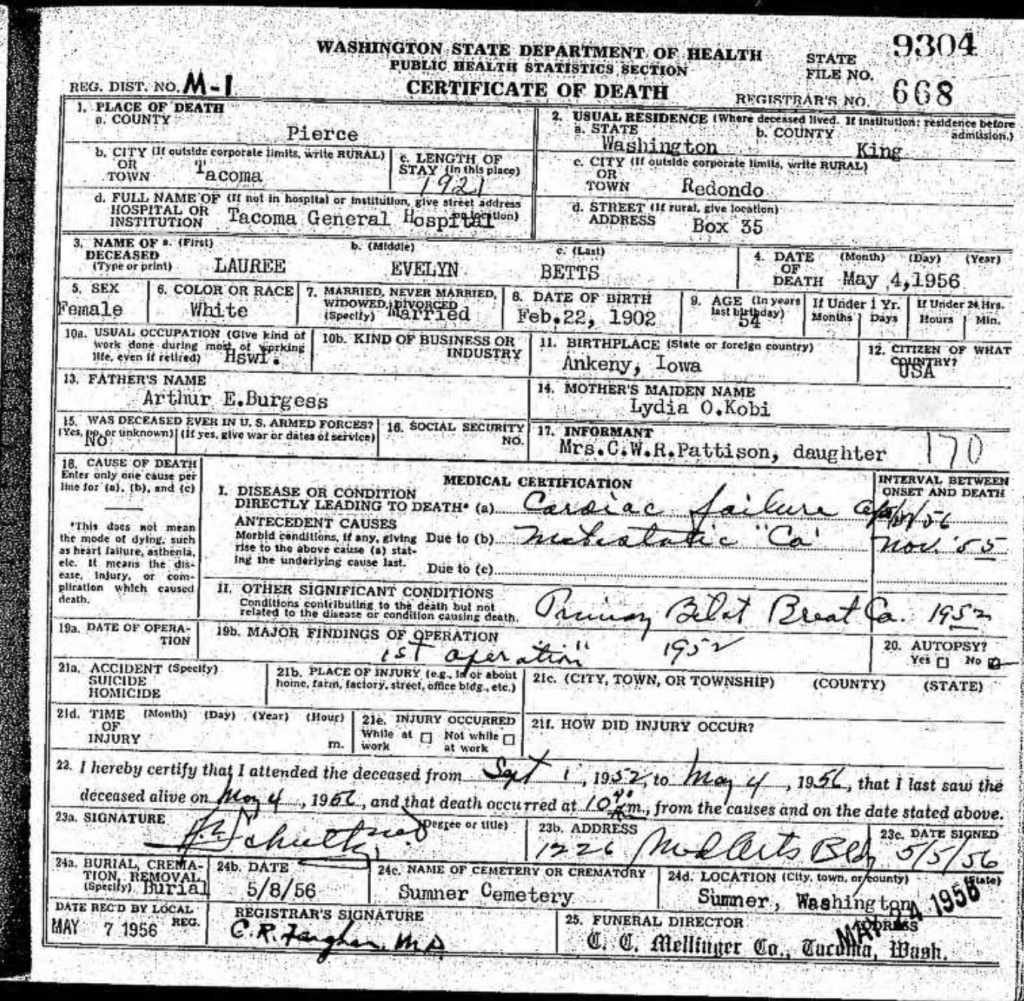 WASHINGTON STATE DEPARTMENT OF HEALTH
PUBLIC HEALTH STATISTICS SECTION
CERTIFICATE OF DEATH
REG. DIST. NO. M-1
STATE FILE NO. 9304
REGISTRAR'S NO. 668
1. PLACE OF DEATH
a. COUNTY Pierce
b. CITY (If outside corporate limits, write RURAL) OR TOWN Tacoma
c. LENGTH OF STAY (in this place) 1921
d. FULL NAME OF (If not in hospital or institution, give street address or location) HOSPITAL OR INSTITUTION Tacoma General Hospital
2. USUAL RESIDENCE (Where deceased lived. If institution: residence before admission.)
a. STATE Washington b. COUNTY King
c. CITY (If outside corporate limits, write RURAL) OR TOWN Redondo
d. STREET (If rural, give location) ADDRESS Box 35
3. NAME OF DECEASED (Type or print) a. (First) LAUREE b. (Middle) EVELYN c. (Last) BETTS
4. DATE OF DEATH (Month) (Day) (Year) May 4,1956
5. SEX Female
6. COLOR OR RACE White
7. MARRIED, NEVER MARRIED, WIDOWED, DIVORCED (Specify) Married
8. DATE OF BIRTH Feb.22, 1902
9. AGE (In years last birthday) 54
If Under 1 Yr. Months Days
If Under 24 Hrs. Hours Min.
10a. USUAL OCCUPATION (Give kind of work done during most of working life, even if retired) Hswf.
10b. KIND OF BUSINESS OR INDUSTRY
11. BIRTHPLACE (State or foreign country) Ankeny, Iowa
12. CITIZEN OF WHAT COUNTRY? USA
13. FATHER'S NAME Arthur E.Burgess
14. MOTHER'S MAIDEN NAME Lydia O.Kobi
15. WAS DECEASED EVER IN U. S. ARMED FORCES? (Yes, no, or unknown) (If yes, give war or dates of service) No
16. SOCIAL SECURITY NO.
17. INFORMANT Mrs.C.W.R.Pattison, daughter 170
18. CAUSE OF DEATH
Enter only one cause per line for (a), (b), and (c)
*This does not mean the mode of dying, such as heart failure, asthenia, etc. It means the disease, injury, or complication which caused death.
MEDICAL CERTIFICATION
INTERVAL BETWEEN ONSET AND DEATH
I. DISEASE OR CONDITION DIRECTLY LEADING TO DEATH* (a) Cardiac failure
ANTECEDENT CAUSES
Morbid conditions, if any, giving rise to the above cause (a) stating the underlying cause last.
Due to (b) Metastatic "Ca" Nov. 55
Due to (c)
II. OTHER SIGNIFICANT CONDITIONS
Conditions contributing to the death but not related to the disease or condition causing death.
Primary Bilat Breat Ca. 1952
19a. DATE OF OPERATION
19b. MAJOR FINDINGS OF OPERATION 1st operation" 1952
20. AUTOPSY? Yes No
21a. ACCIDENT (Specify) SUICIDE HOMICIDE
21b. PLACE OF INJURY (e.g., in or about home, farm, factory, street, office bldg., etc.)
21c. (CITY, TOWN, OR TOWNSHIP) (COUNTY) (STATE)
21d. TIME OF INJURY (Month) (Day) (Year) (Hour) m.
21e. INJURY OCCURRED While at work Not while at work
21f. HOW DID INJURY OCCUR?
22. I hereby certify that I attended the deceased from Sept 1, 1952, to May 4, 1956, that I last saw the
deceased alive on May 4, 1956, and that death occurred at 10 m., from the causes and on the date stated above.
23a. SIGNATURE (Degree or title)
23b. ADDRESS 1226 Med Arts Bldg
23c. DATE SIGNED 5/5/56
24a. BURIAL, CREMATION, REMOVAL (Specify) Burial
24b. DATE 5/8/56
24c. NAME OF CEMETERY OR CREMATORY Sumner Cemetery
24d. LOCATION (City, town, or county) (State) Sumner, Washington
DATE REC'D BY LOCAL REG. MAY 7 1956
REGISTRAR'S SIGNATURE
25. FUNERAL DIRECTOR ADDRESS
C. C. Mellinger Co., Tacoma, Wash.
MAY 24 1956